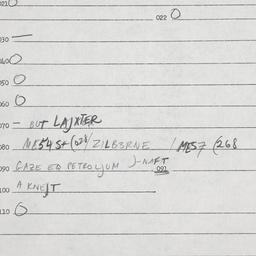 021 O
022 O
030 —
040 O
050 O
060 O
070 – BUT LAJXTER
080 ZILBERNE / (268
090 GAZE EQ PETROLJUM )-NAFT 091
100 A KNEJT
110 O